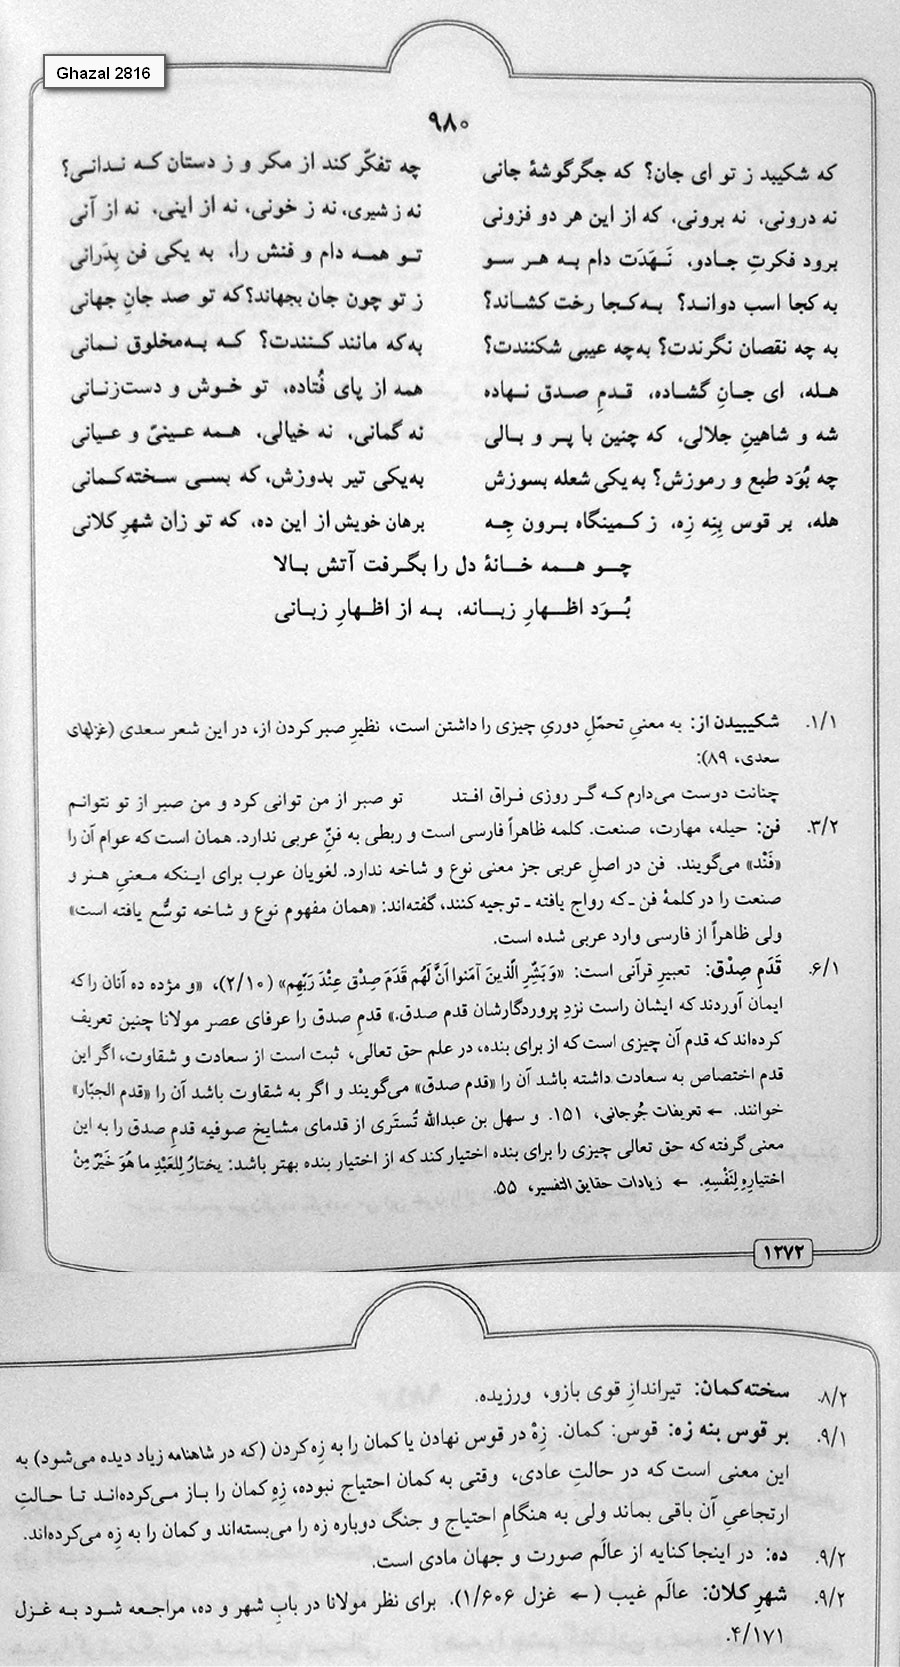 Ghazal 2816
۹۸۰
که شکیبد ز تو ای جان؟ که جگرگوشهٔ جانی چه تفکّر کند از مکر و ز دستان که ندانی؟
نه درونی، نه برونی، که از این هر دو فزونی نه ز شیری، نه ز خونی، نه از اینی، نه از آنی
برود فکرتِ جادو، نَهَدَت دام به هر سو تو همه دام و فنش را، به یکی فن بِدَرانی
به کجا اسب دواند؟ به‌کجا رخت کشاند؟ ز تو چون جان بجهاند؟ که تو صد جانِ جهانی
به چه نقصان نگرندت؟ به‌چه عیبی شکنندت؟ به‌که مانند کنندت؟ که به‌مخلوق نمانی
هله، ای جانِ گشاده، قدمِ صدق نهاده همه از پای فُتاده، تو خوش و دست‌زنانی
شه و شاهینِ جلالی، که چنین با پر و بالی نه گمانی، نه خیالی، همه عینیّ و عیانی
چه بُوَد طبع و رموزش؟ به‌یکی شعله بسوزش به‌یکی تیر بدوزش، که بسی سخته‌کمانی
هله، بر قوس بِنِه زِه، ز کمینگاه برون جِه برهان خویش از این ده، که تو زان شهرِ کلانی
چو همه خانهٔ دل را بگرفت آتش بالا
بُوَد اظهارِ زبانه، به از اظهارِ زبانی
۱/۱. شکیبیدن از: به معنیِ تحمّلِ دوریِ چیزی را داشتن است، نظیرِ صبر کردن از، در این شعر سعدی (غزلهای
سعدی، ۸۹):
چنانت دوست می‌دارم که گر روزی فراق افتد تو صبر از من توانی کرد و من صبر از تو نتوانم
۳/۲. فن: حیله، مهارت، صنعت. کلمه ظاهراً فارسی است و ربطی به فنِّ عربی ندارد. همان است که عوام آن را
«فَنْد» می‌گویند. فن در اصلِ عربی جز معنی نوع و شاخه ندارد. لغویان عرب برای اینکه معنیِ هنر و
صنعت را در کلمهٔ فن ـ که رواج یافته ـ توجیه کنند، گفته‌اند: «همان مفهوم نوع و شاخه توسُّع یافته است»
ولی ظاهراً از فارسی وارد عربی شده است.
۶/۱. قَدَمِ صِدْق: تعبیرِ قرآنی است: «وَ بَشِّرِ الَّذینَ آمَنوا اَنَّ لَهُم قَدَمَ صِدْقٍ عِنْدَ رَبِّهِم» (۲/۱۰)، «و مژده ده آنان را که
ایمان آوردند که ایشان راست نزدِ پروردگارشان قدم صدق.» قدمِ صدق را عرفای عصر مولانا چنین تعریف
کرده‌اند که قدم آن چیزی است که از برای بنده، در علم حق تعالی، ثبت است از سعادت و شقاوت، اگر این
قدم اختصاص به سعادت داشته باشد آن را «قدم صدق» می‌گویند و اگر به شقاوت باشد آن را «قدم الجبّار»
خوانند. ← تعریفات جُرجانی، ۱۵۱. و سهل بن عبدالله تُستَری از قدمای مشایخ صوفیه قدمِ صدق را به این
معنی گرفته که حق تعالی چیزی را برای بنده اختیار کند که از اختیار بنده بهتر باشد: یختارُ لِلعَبْدِ ما هُوَ خَیْرٌ مِنْ
اختیارِهِ لِنَفْسِهِ. ← زیادات حقایق التفسیر، ۵۵.
۱۲۷۲
۸/۲. سخته‌کمان: تیراندازِ قوی بازو، ورزیده.
۹/۱. بر قوس بنه زه: قوس: کمان. زِهْ در قوس نهادن یا کمان را به زِه کردن (که در شاهنامه زیاد دیده می‌شود) به
این معنی است که در حالتِ عادی، وقتی به کمان احتیاج نبوده، زِهِ کمان را باز می‌کرده‌اند تا حالتِ
ارتجاعیِ آن باقی بماند ولی به هنگامِ احتیاج و جنگ دوباره زه را می‌بسته‌اند و کمان را به زِه می‌کرده‌اند.
۹/۲. ده: در اینجا کنایه از عالَمِ صورت و جهان مادی است.
۹/۲. شهرِ کلان: عالَم غیب (← غزل ۱/۶۰۶). برای نظر مولانا در بابِ شهر و ده، مراجعه شود به غزل
۴/۱۷۱.